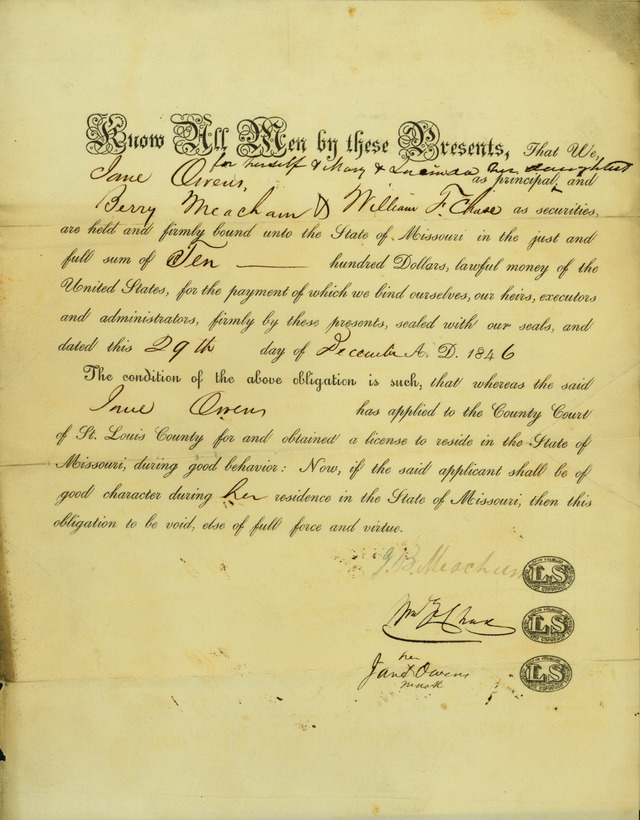 Know All Men by these Presents, That We,
for herself & Mary & Lucinda her daughters
Jane Owens, as principal, and
Berry Meacham & William F. Chase as securities,
are held and firmly bound unto the State of Missouri in the just and
full sum of Ten — hundred Dollars, lawful money of the
United States, for the payment of which we bind ourselves, our heirs, executors
and administrators, firmly by these presents, sealed with our seals, and
dated this 29th day of December A. D. 1846
The condition of the above obligation is such, that whereas the said
Jane Owens has applied to the County Court
of St. Louis County for and obtained a license to reside in the State of
Missouri, during good behavior: Now, if the said applicant shall be of
good character during her residence in the State of Missouri, then this
obligation to be void, else of full force and virtue.
J. B. Meachum LS
Wm F Chase LS
her
Jane X Owens LS
mark